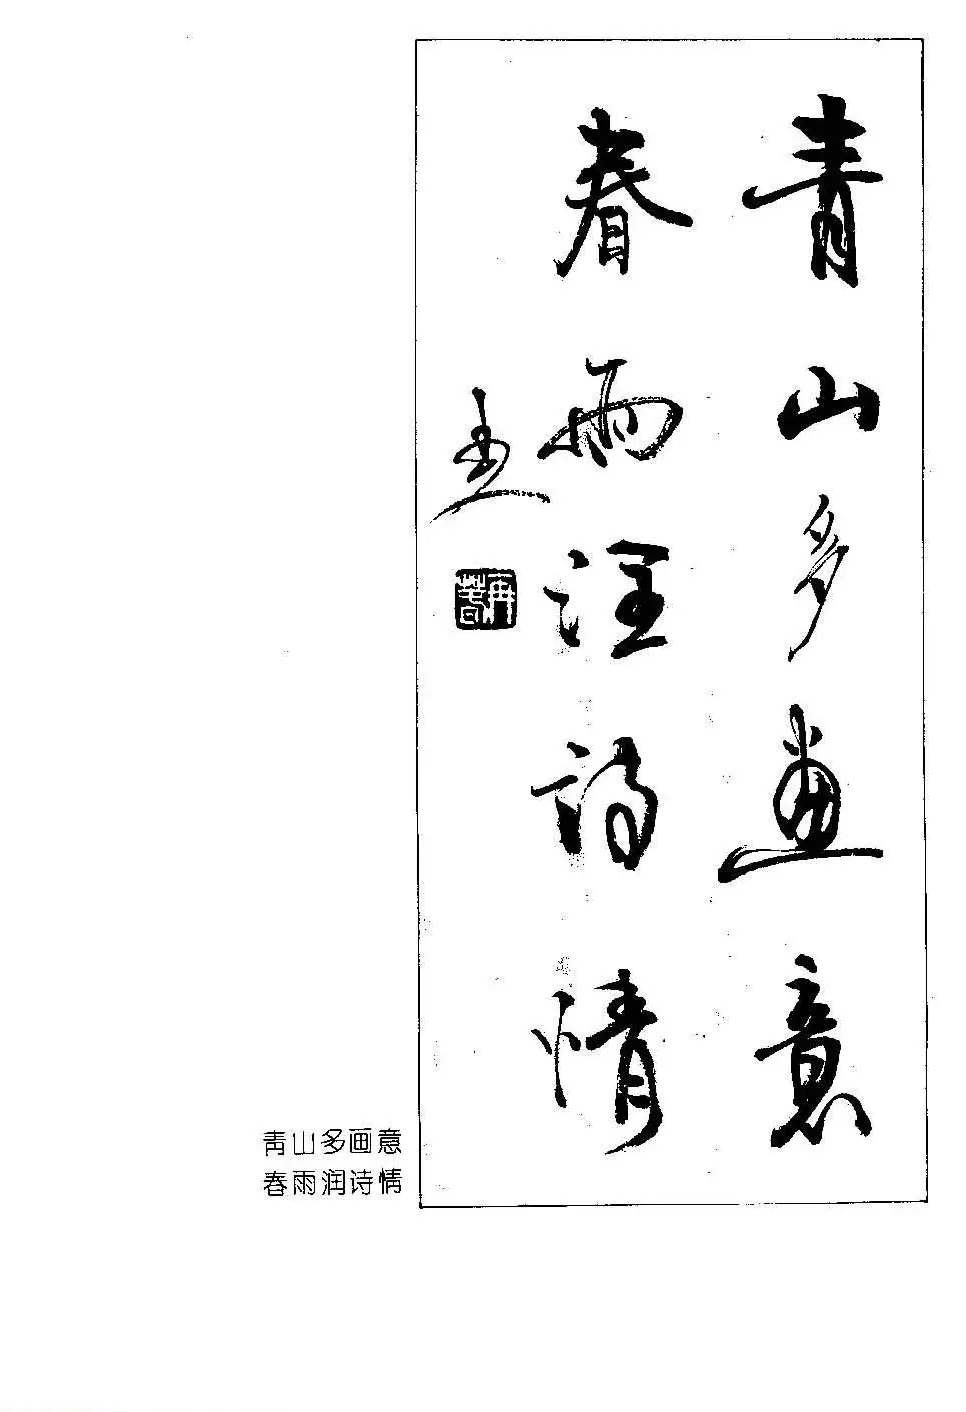 青山多畫意
春雨潤詩情
青山多画意
春雨润诗情